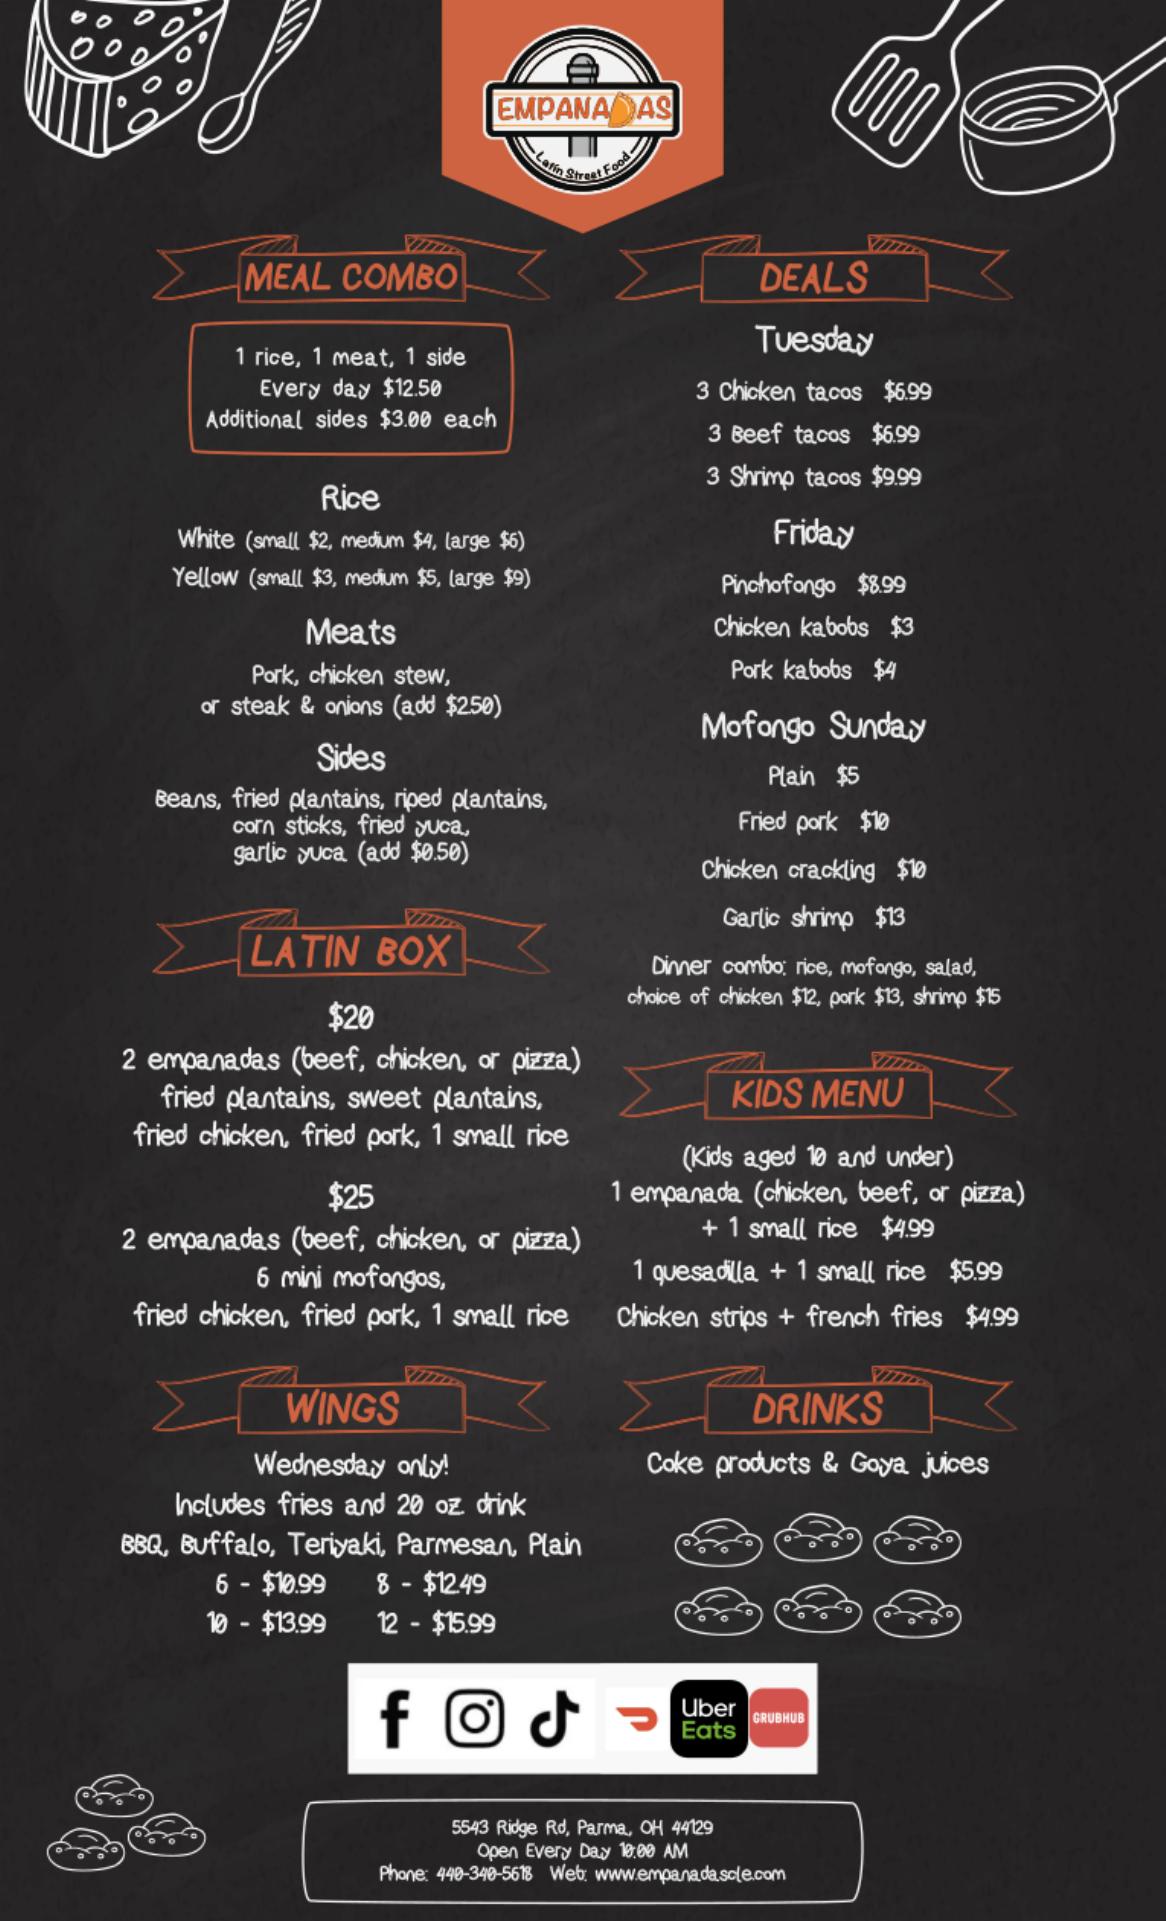 EMPANADAS
Latin Street Food
MEAL COMBO
1 rice, 1 meat, 1 side
Every day $12.50
Additional sides $3.00 each
Rice
White (small $2, medium $4, large $6)
Yellow (small $3, medium $5, large $9)
Meats
Pork, chicken stew,
or steak & onions (add $2.50)
Sides
Beans, fried plantains, riped plantains,
corn sticks, fried yuca,
garlic yuca (add $0.50)
LATIN BOX
$20
2 empanadas (beef, chicken, or pizza)
fried plantains, sweet plantains,
fried chicken, fried pork, 1 small rice
$25
2 empanadas (beef, chicken, or pizza)
6 mini mofongos,
fried chicken, fried pork, 1 small rice
WINGS
Wednesday only!
Includes fries and 20 oz. drink
BBQ, Buffalo, Teriyaki, Parmesan, Plain
6 - $10.99 8 - $12.49
10 - $13.99 12 - $15.99
DEALS
Tuesday
3 Chicken tacos $6.99
3 Beef tacos $6.99
3 Shrimp tacos $9.99
Friday
Pinchofongo $8.99
Chicken kabobs $3
Pork kabobs $4
Mofongo Sunday
Plain $5
Fried pork $10
Chicken crackling $10
Garlic shrimp $13
Dinner combo: rice, mofongo, salad,
choice of chicken $12, pork $13, shrimp $15
KIDS MENU
(Kids aged 10 and under)
1 empanada (chicken, beef, or pizza)
+ 1 small rice $4.99
1 quesadilla + 1 small rice $5.99
Chicken strips + french fries $4.99
DRINKS
Coke products & Goya juices
Uber
Eats
GRUBHUB
5543 Ridge Rd, Parma, OH 44129
Open Every Day 10:00 AM
Phone: 440-340-5618 Web: www.empanadascle.com